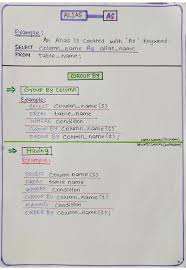 ALIAS AS
Example:
An Alias is created with 'As' keyword.
SELECT column_name As alias_name
FROM table_name;
GROUP BY
Group By Column
Example:
SELECT column_name(s)
FROM table_name
WHERE condition
GROUP BY column_name(s)
ORDER BY column_name(s);
Having
Example:
SELECT column_name(s)
FROM table_name
WHERE condition
GROUP BY column_name(s)
HAVING condition
ORDER BY column_name(s);